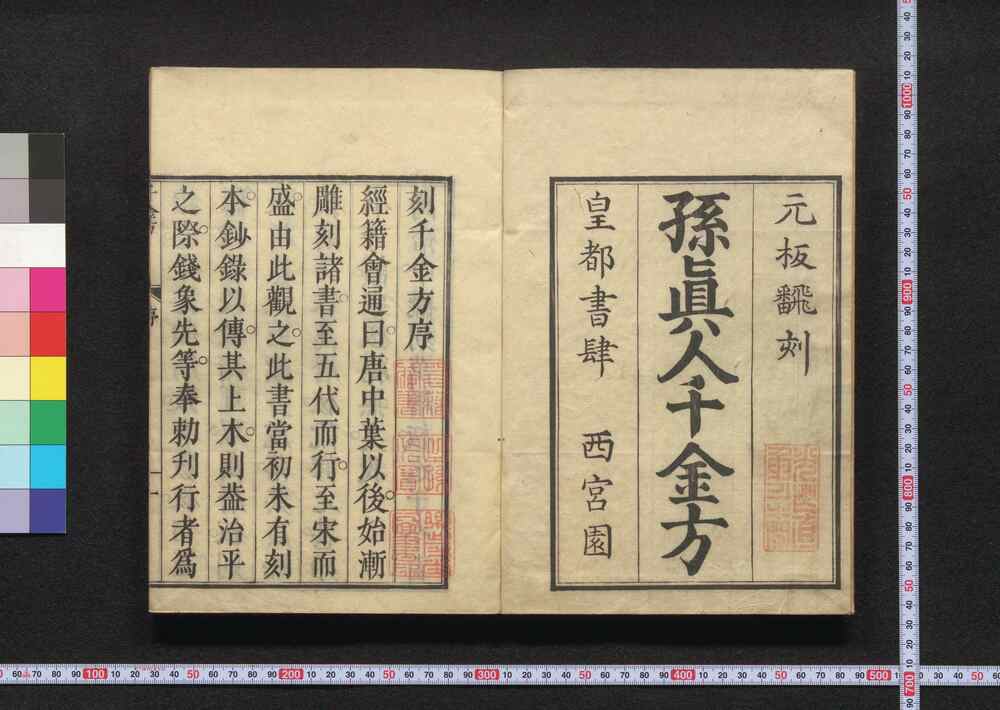 元板飜刻
孫眞人千金方
皇都書肆 西宮園
刻千金方序
經籍會通曰唐中葉以後始漸
雕刻諸書至五代而行至宋而
盛由此觀之此書當初未有刻
本鈔錄以傳其上木則葢治平
之際錢象先等奉勅刋行者爲
序